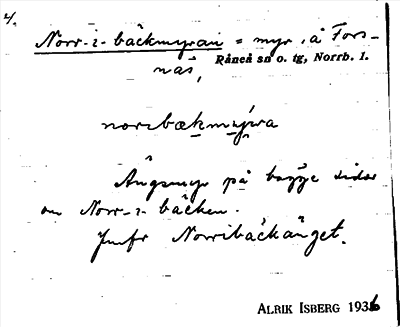 2/.
Norr-i-bäckmyran = myr, å Fors-
näs,
Råneå sn o. tg, Norrb. l.
noribækmyra
Ängsmyr på bägge sidor
om Norr-i-bäcken.
Jmfr Norribäckänget.
ALRIK ISBERG 1936